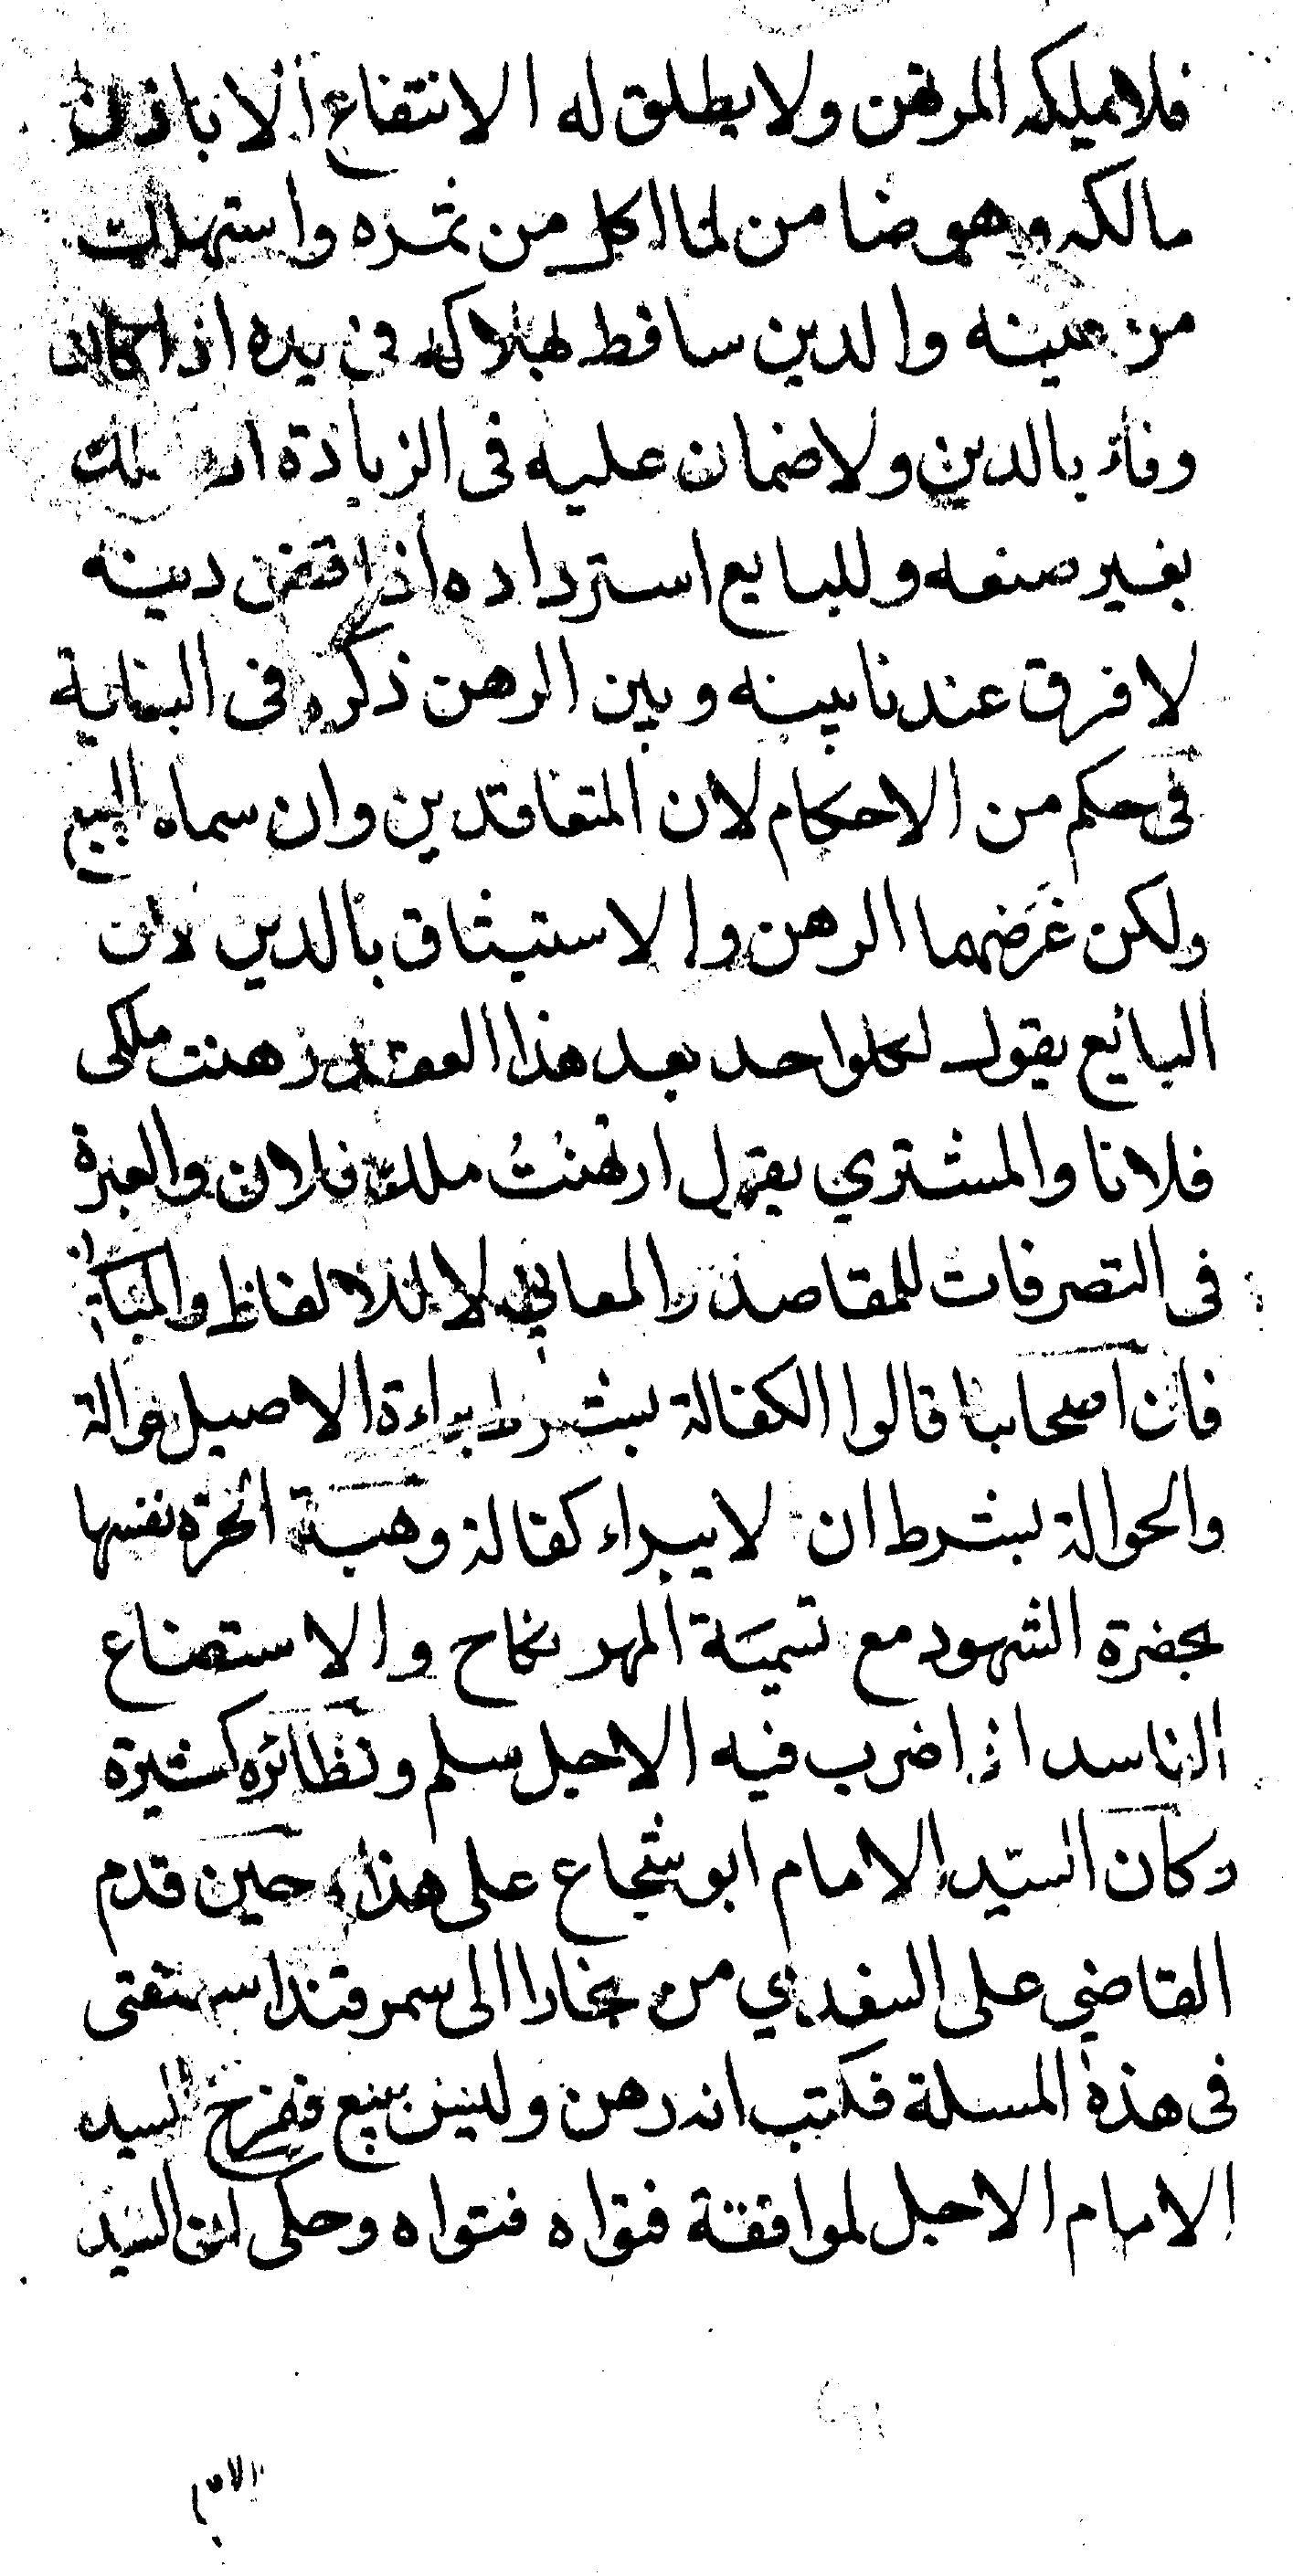 فلا يملكه المرتهن ولا يطلق له الانتفاع الا باذن
مالكه وهو ضامن لما اكل من ثمره واستهلك
من عينه والدين ساقط بهلاكه فى يده اذا كان
وفاء بالدين ولا ضمان عليه فى الزيادة اذا هلك
بغير صنعه وللبايع استرداده اذا قضى دينه
لا فرق عندنا بينه وبين الرهن ذكره فى البناية
فى حكم من الاحكام لان المتعاقدين وان سماه البيع
ولكن غرضهما الرهن والاستيثاق بالدين لان
البائع يقول لكل واحد بعد هذا العقد رهنت ملكى
فلانا والمشتري يقول ارتهنت ملك فلان والعبرة
فى التصرفات للمقاصد والمعاني لا للالفاظ والمبانى
فان اصحابنا قالوا الكفالة بشرط براءة الاصيل حوالة
والحوالة بشرط ان لا يبراء كفالة وهبة الحرة نفسها
بحضرة الشهود مع تسمية المهر نكاح والاستصناع
الفاسد اذا ضرب فيه الاجل سلم ونظائره كثيرة
وكان السيد الامام ابو شجاع على هذا حين قدم
القاضي على السغدي من بخارا الى سمرقند استفتى
فى هذه المسلة فكتب انه رهن وليس ببيع ففرح السيد
الامام الاجل لموافقة فتواه فتواه وحكى ان السيد
الامام